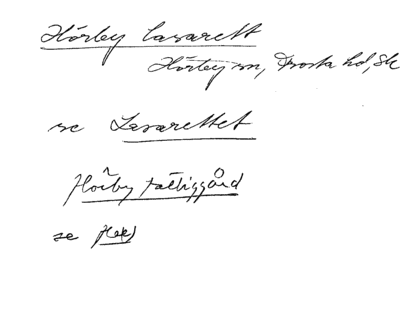 Hörby lasarett
Hörby sn, Frosta hd, Sk
se Lasarettet
Hörby fattiggård
se